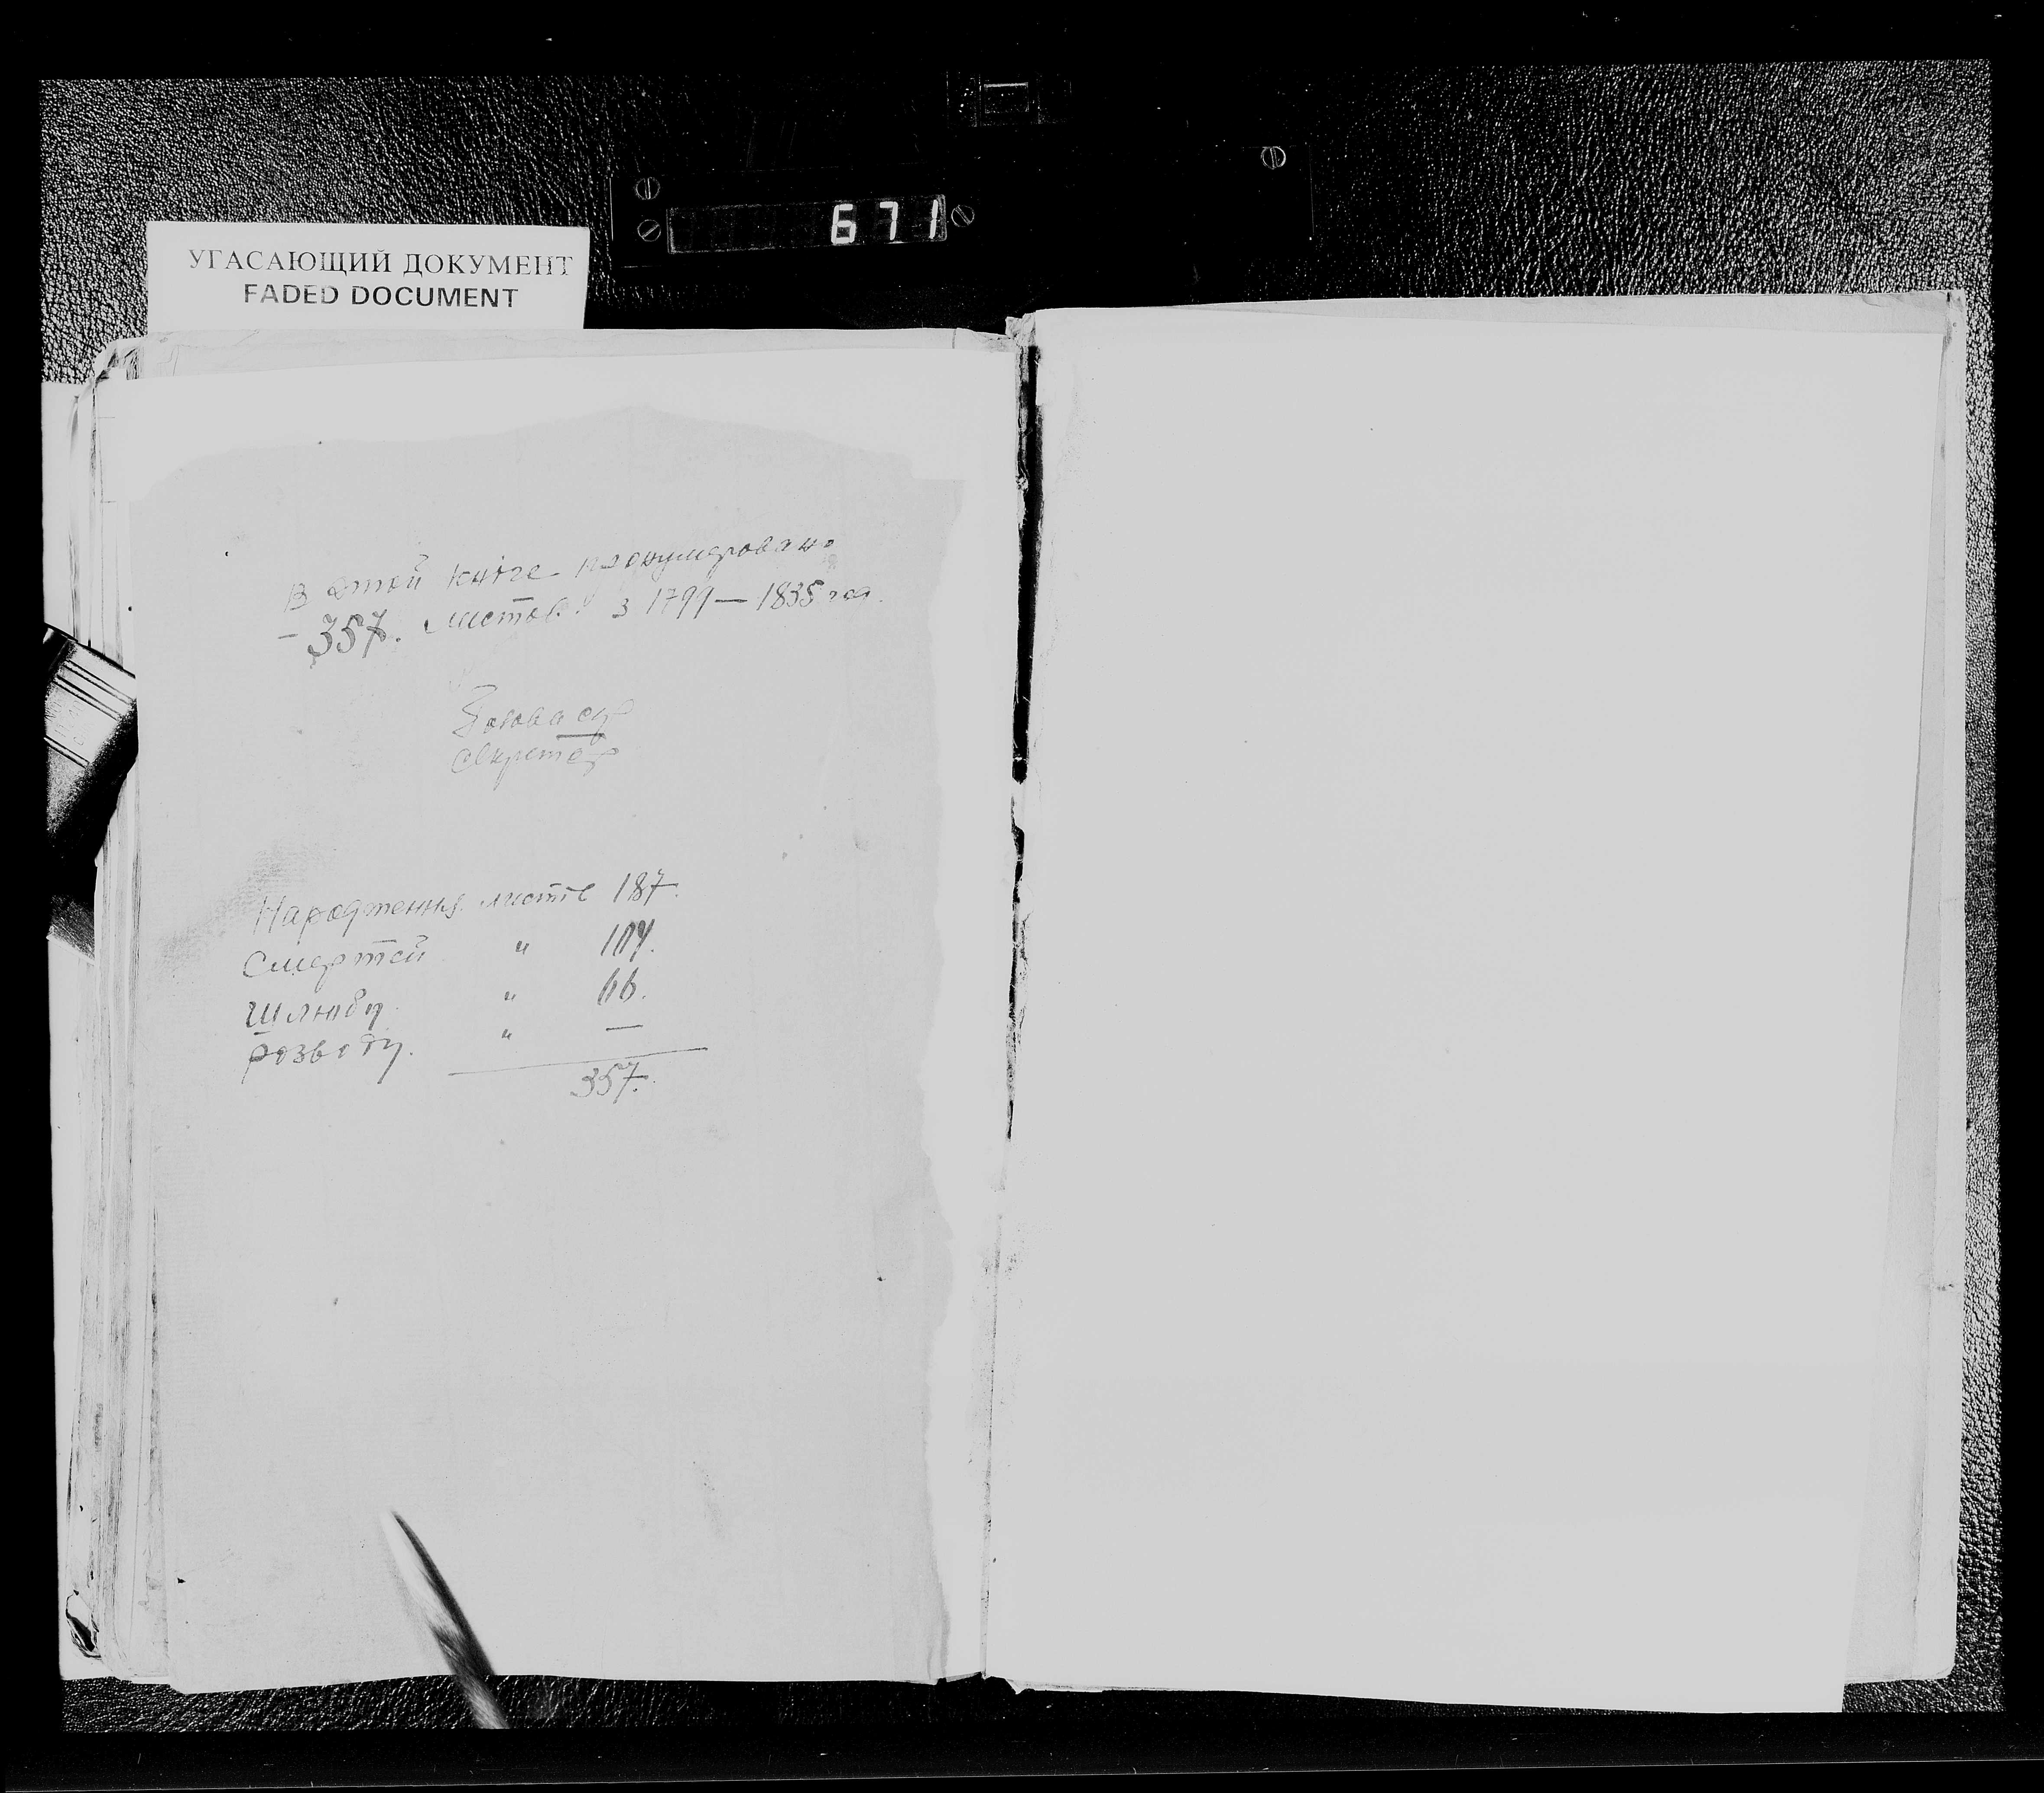 671
УГАСАЮЩИЙ ДОКУМЕНТ
FADED DOCUMENT
В этой кніге пронумеровано
– 357. листов. з 1799 — 1835 год.
Голова ср
Секретар
Народження листів 187.
Смертей " 104.
Шлюбу " 66.
розводу. " —
357.